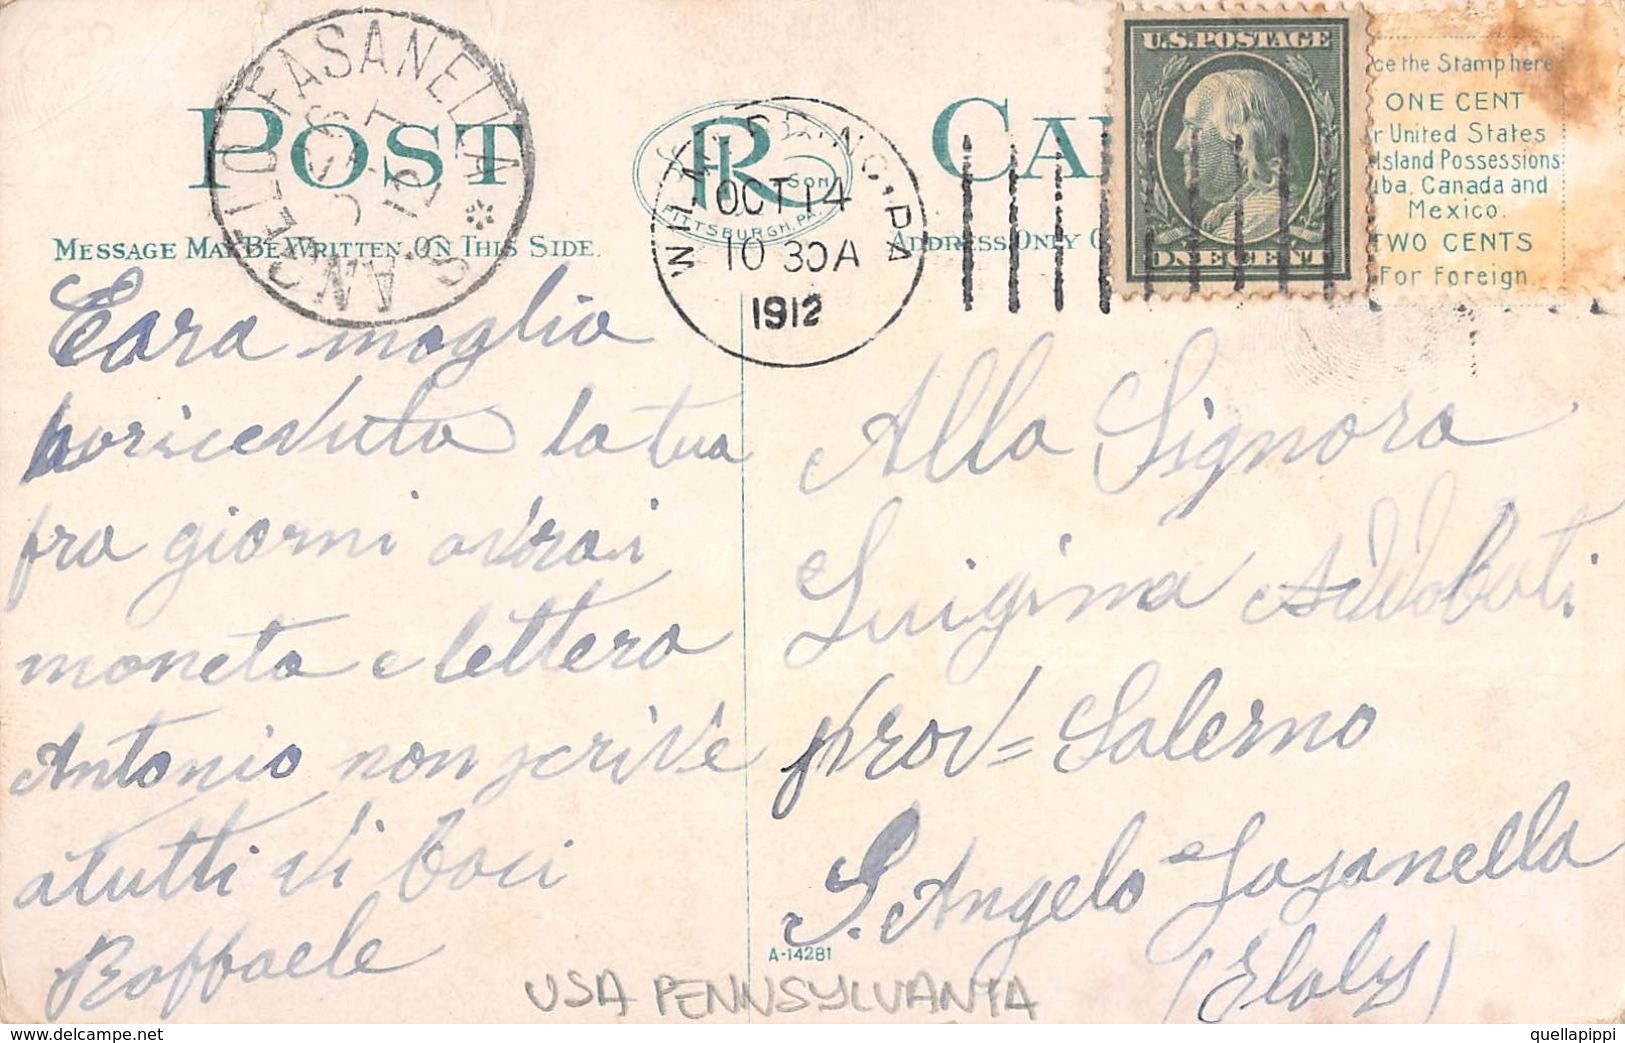 POST CARD
MESSAGE MAY BE WRITTEN ON THIS SIDE.
S. ANGELO FASANELLA
R & SON
PITTSBURGH, PA.
WILMERDING, PA
OCT 14
10 30 A
1912
ADDRESS ONLY
U.S. POSTAGE
ONE CENT
ce the Stamp here
ONE CENT
r United States
Island Possessions
uba, Canada and
Mexico.
TWO CENTS
For Foreign.
Cara moglia
ho ricevuto la tua
fra giorni avrai
moneta e lettera
Antonio non scrive
a tutti vi baci
Raffaele
Alla Signora
Luigina Addobati
prov= Salerno
S. Angelo Fasanella
(Italy)
A-14281
USA PENNSYLVANIA
www.delcampe.net
quellapippi